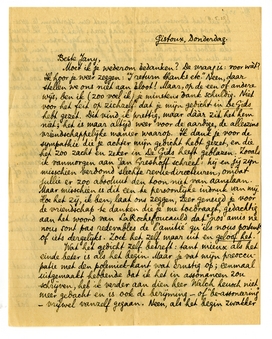 Gistoux, Donderdag.
Beste Jany,
Moet ik je wederom bedanken? De vraag is: voor wàt?
Ik hoor je weer zeggen: I return thanks etc. Neen, daar
stellen we ons niet aan bloot! Maar, op de een of andere
wijs, ben ik (zoo voel ik) je minstens dank schuldig. Niet
voor het feit op zichzelf dat je mijn gedicht in De Gids
hebt gezet. Dat vind ik prettig, maar daar zit het hem
niet; het is maar altijd weer voor de aardige, de alleszins
vriendschappelijke manier waarop. Ik dank je voor de
sympathie die je achter mijn gedicht hebt gezet, en die
het zoo zacht en zeker in De Gids heeft geblazen, zooals
ik vanmorgen aan Jan Greshoff schreef. Hij en jij zijn
misschien verdomd slechte revue-directeuren, omdat
jullie er zoo absoluut den toon niet van aanslaan.
Maar misschien is dit een te persoonlijke indruk van mij.
Hoe het zij, ik ben, laat ons zeggen, zeer gevoelig voor
de vriendschap te danken die je me toedraagt, gedachtig
aan het woord van La Rochefoucauld dat „nos amis ne
nous sont pas redevables de l'amitié qu'ils nous portent"
of iets dergelijks. Zoek het zelf maar uit en geloof het.
Wat het gedicht zelf betreft: tant mieux als het
einde beter is als het begin. Maar wat mijn preoccu-
patie met den polemiek-kant was ernstig op; eenmaal
uitgemaakt hebbende dat ik het in assonancen zou
schrijven, heb ik verder aan dien heer Walch heusch niet
meer gedacht en is ook de berijming – of be-assonancing
– vrijwel vanzelf gegaan. Neen, als het begin zwakker